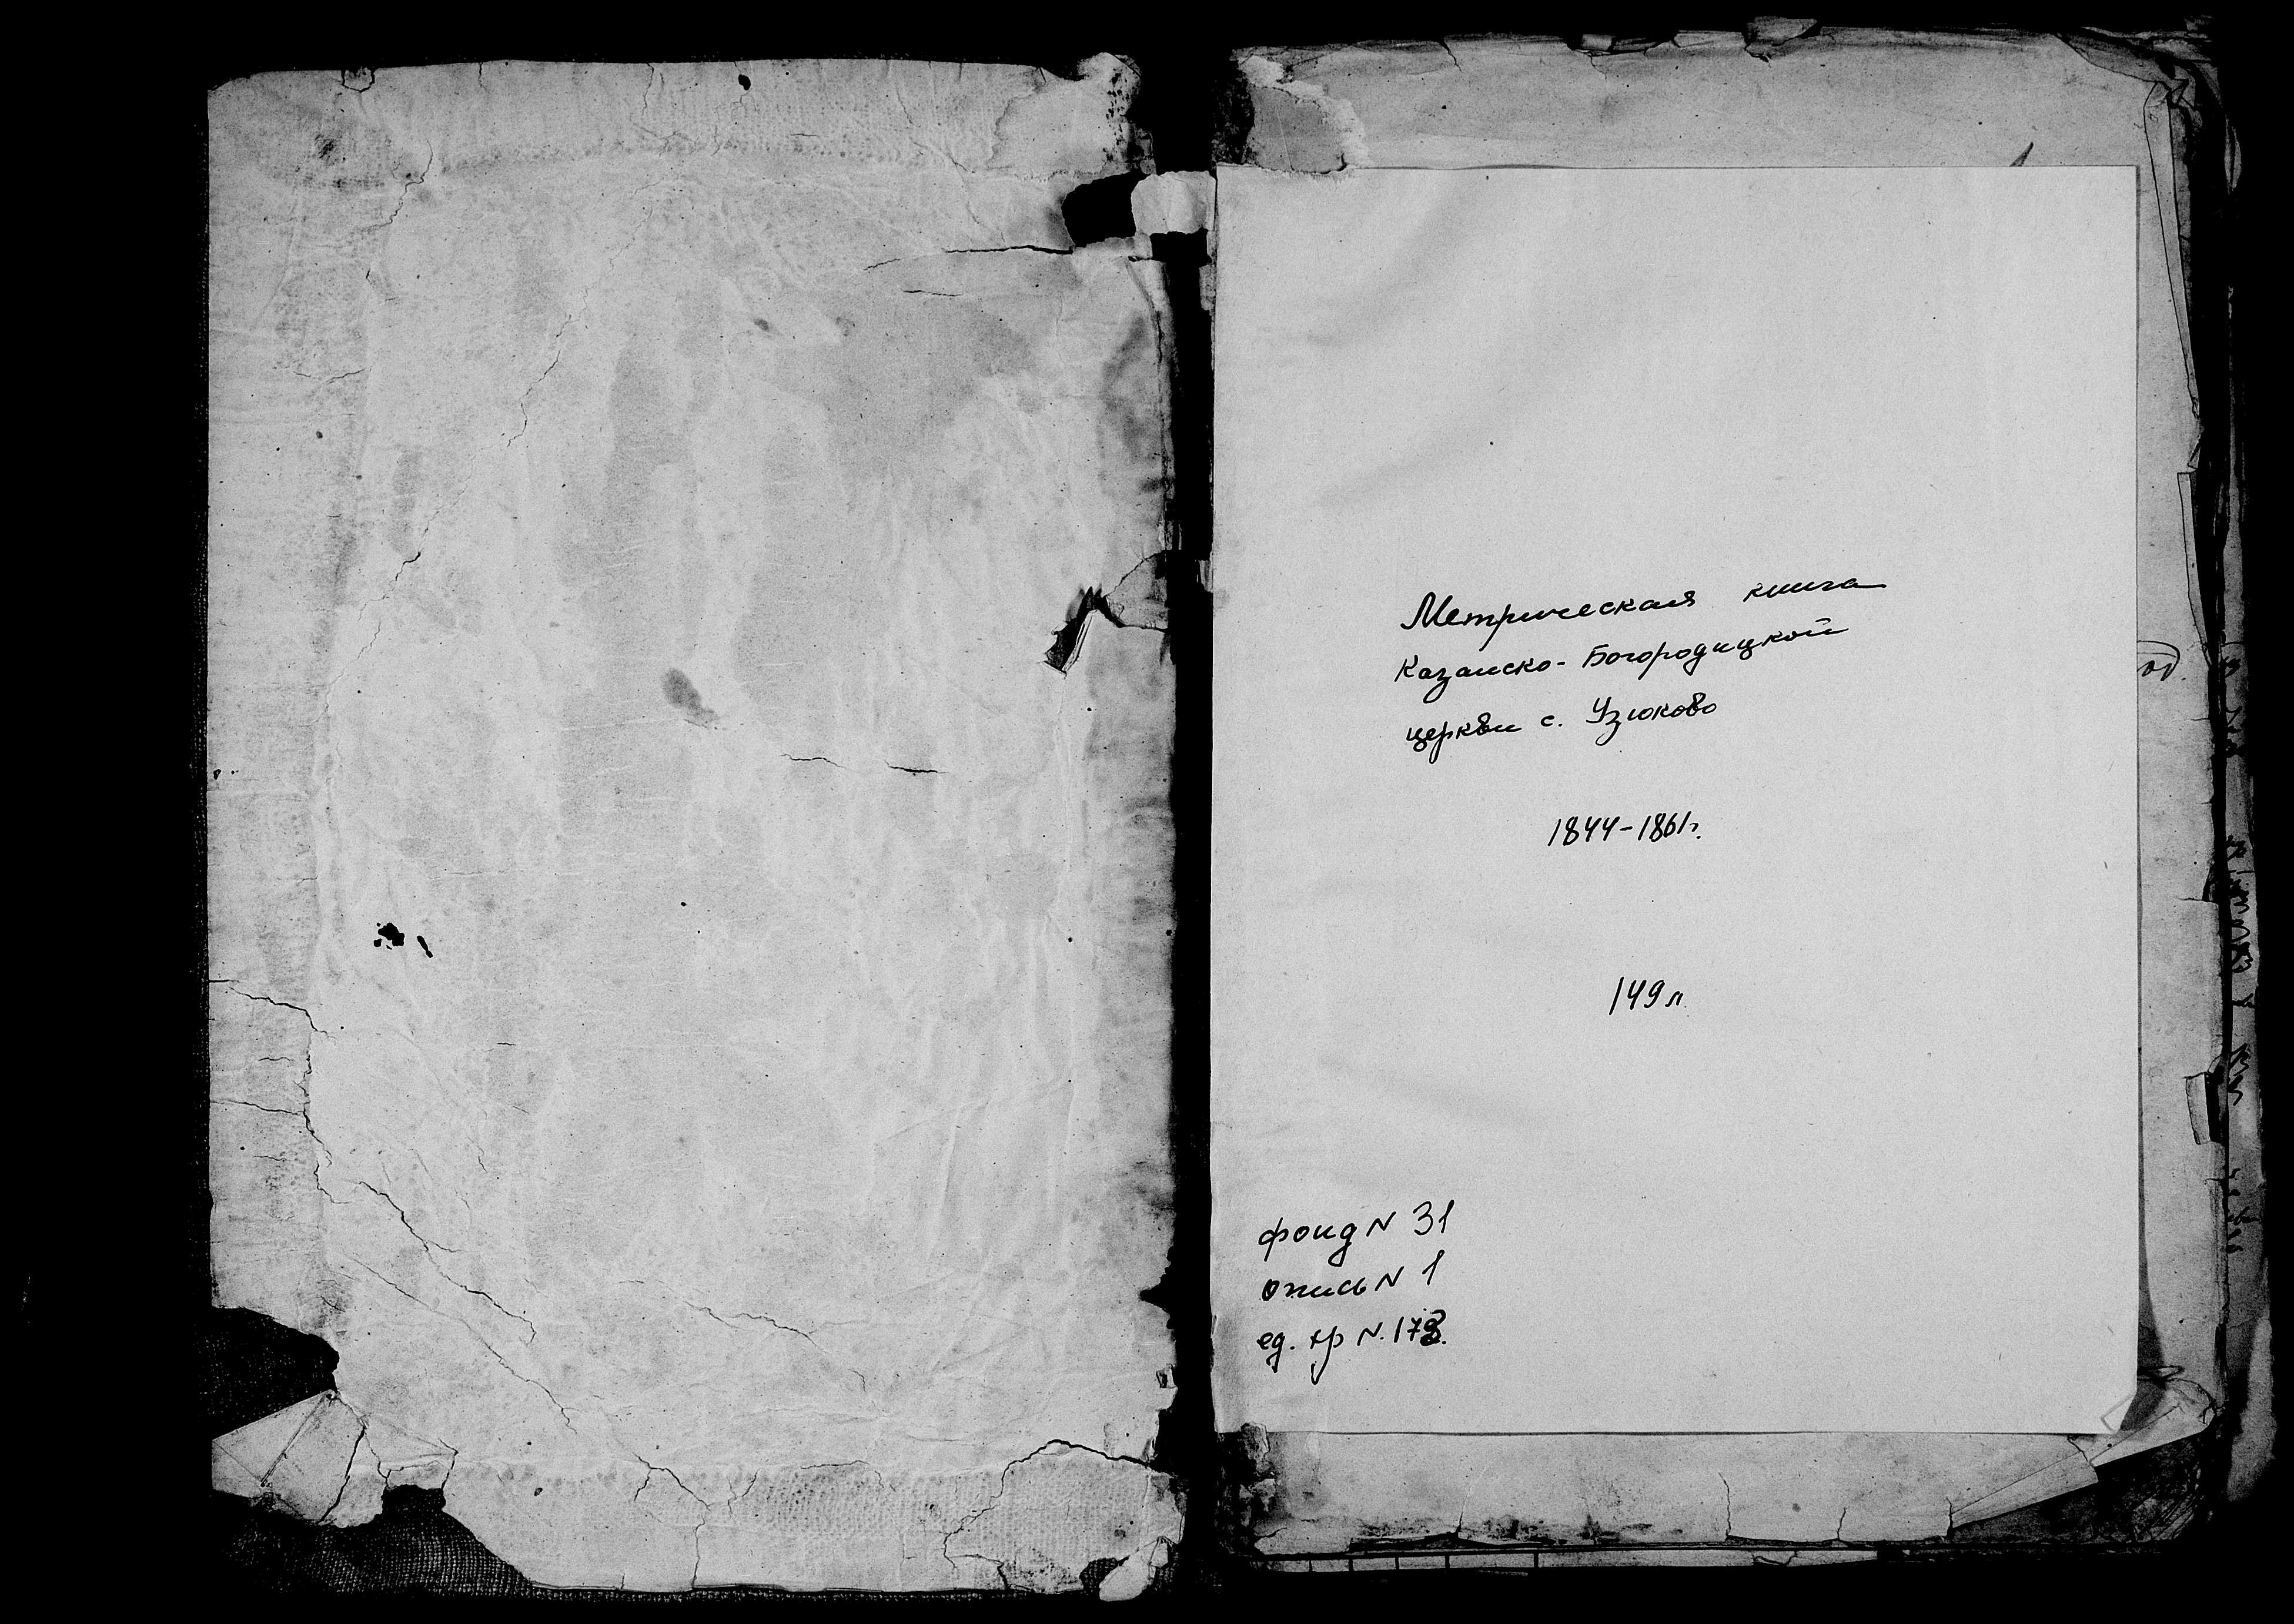 Метрическая книга
Казанско-Богородицкой
церкви с. Узюково
1844-1861г.
149 л
фонд N 31
опись N 1
ед. хр N. 178.